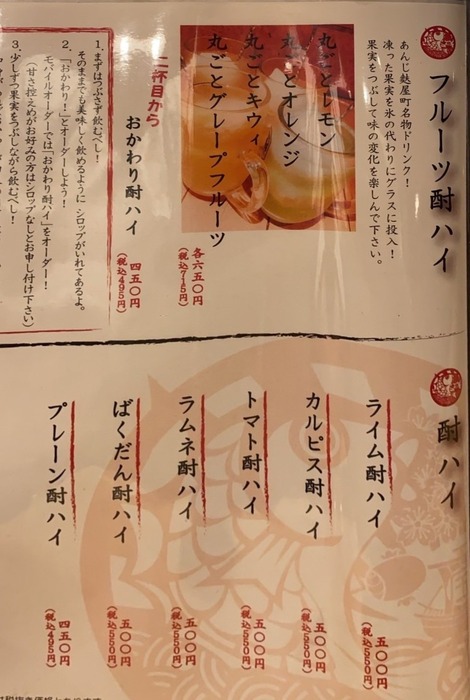 フルーツ酎ハイ
あんじ麩屋町名物ドリンク！
凍った果実を氷の代わりにグラスに投入！
果実をつぶして味の変化を楽しんで下さい。
丸ごとレモン
丸ごとオレンジ
丸ごとキウィ
丸ごとグレープフルーツ
各六五〇円
(税込715円)
二杯目から
おかわり酎ハイ
四五〇円
(税込495円)
1．まずはつぶさず飲むべし！
そのままでも美味しく飲めるように シロップがいれてあるよ。
2．「おかわり！」とオーダーしよう！
モバイルオーダーでは「おかわり酎ハイ」をオーダー！
(甘さ控えめがお好みの方はシロップなしとお申し付け下さい)
3．少しずつ果実をつぶしながら飲むべし！
酎ハイ
ライム酎ハイ
五〇〇円
(税込550円)
カルピス酎ハイ
五〇〇円
(税込550円)
トマト酎ハイ
五〇〇円
(税込550円)
ラムネ酎ハイ
五〇〇円
(税込550円)
ばくだん酎ハイ
五〇〇円
(税込550円)
プレーン酎ハイ
四五〇円
(税込495円)